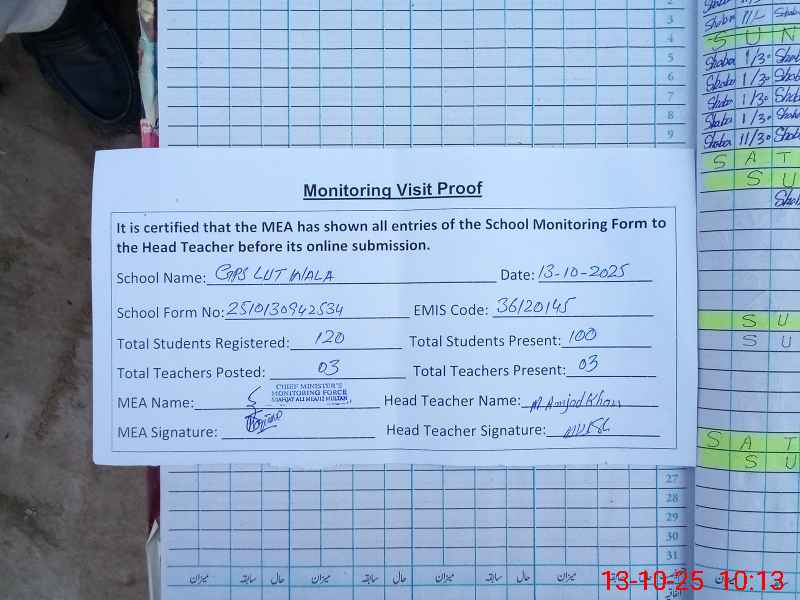 2
3
4
5
6
7
8
9
Shaba 11/
S U N
Shaba 1/30 Shaba
Shaba 1/30 Shaba
Shaba 1/30
Shaba 1/30
Shaba 11/30
S A T
S U
S U
S U
S A T
S U
Monitoring Visit Proof
It is certified that the MEA has shown all entries of the School Monitoring Form to
the Head Teacher before its online submission.
School Name: GPS LUT WALA Date: 13-10-2025
School Form No: 2510130942534 EMIS Code: 36120145
Total Students Registered: 120 Total Students Present: 100
Total Teachers Posted: 03 Total Teachers Present: 03
MEA Name: CHIEF MINISTER'S
MONITORING FORCE
SHAFQAT ALI NIAZI MULTAN
Head Teacher Name: M Amjad Khan
MEA Signature: Head Teacher Signature:
27
28
29
30
31
میزان سابقہ حال میزان سابقہ حال میزان سابقہ حال میزان
13-10-25 10:13